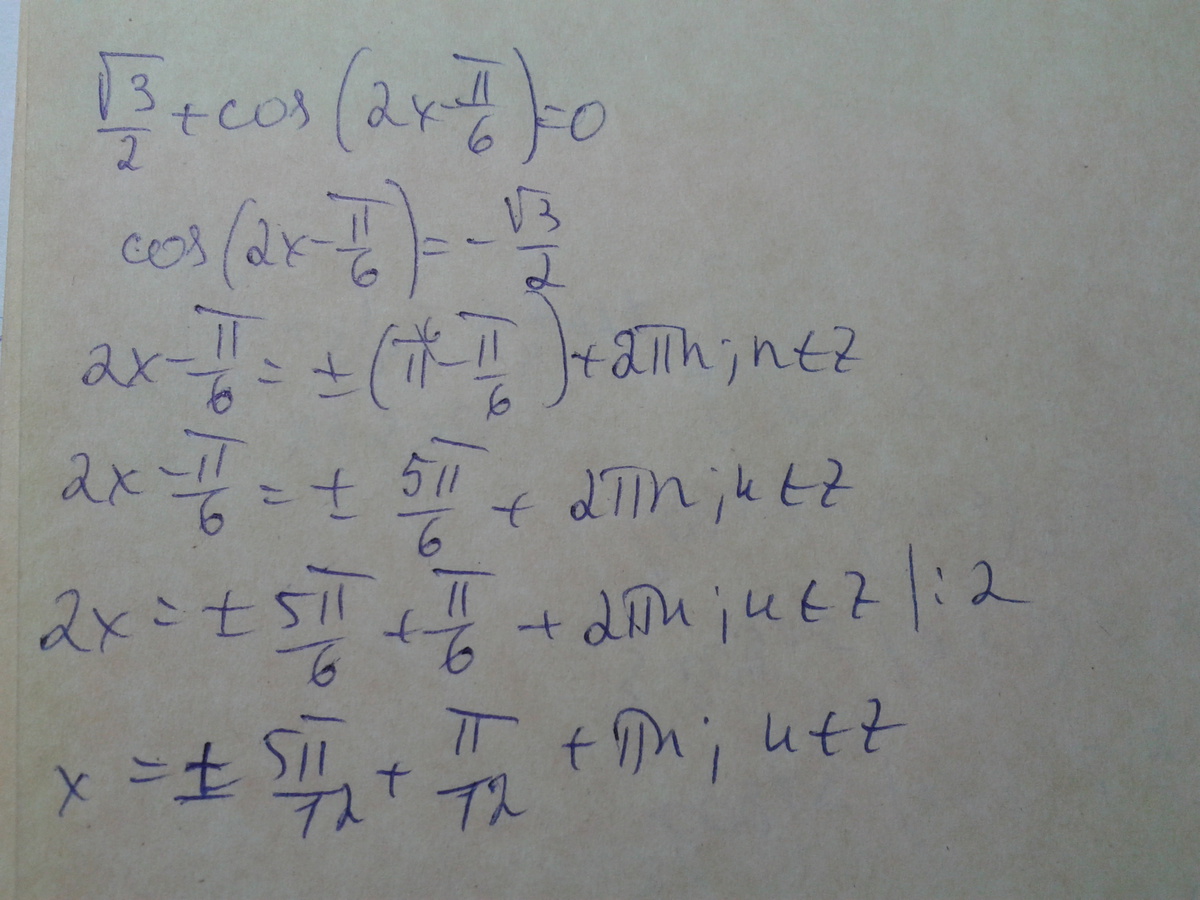 √3/2 + cos(2x - π/6) = 0
cos(2x - π/6) = - √3/2
2x - π/6 = ± (π - π/6) + 2πn; n ∈ Z
2x - π/6 = ± 5π/6 + 2πn; n ∈ Z
2x = ± 5π/6 + π/6 + 2πn; n ∈ Z | : 2
x = ± 5π/12 + π/12 + πn; n ∈ Z